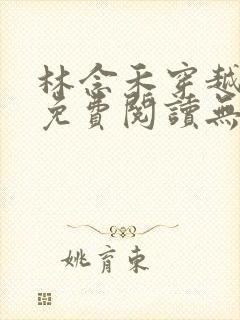 林念禾穿越
免費閱讀無
姚育東